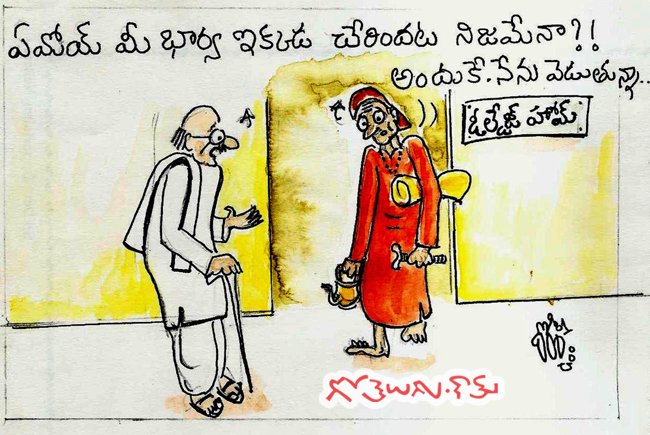 ఏమోయ్ మీ భార్య ఇక్కడ చేరిందట నిజమేనా?!!
అందుకే.నేను వెడుతున్నా..
ఓల్డేజ్ హోమ్
గోతెలుగు.కామ్